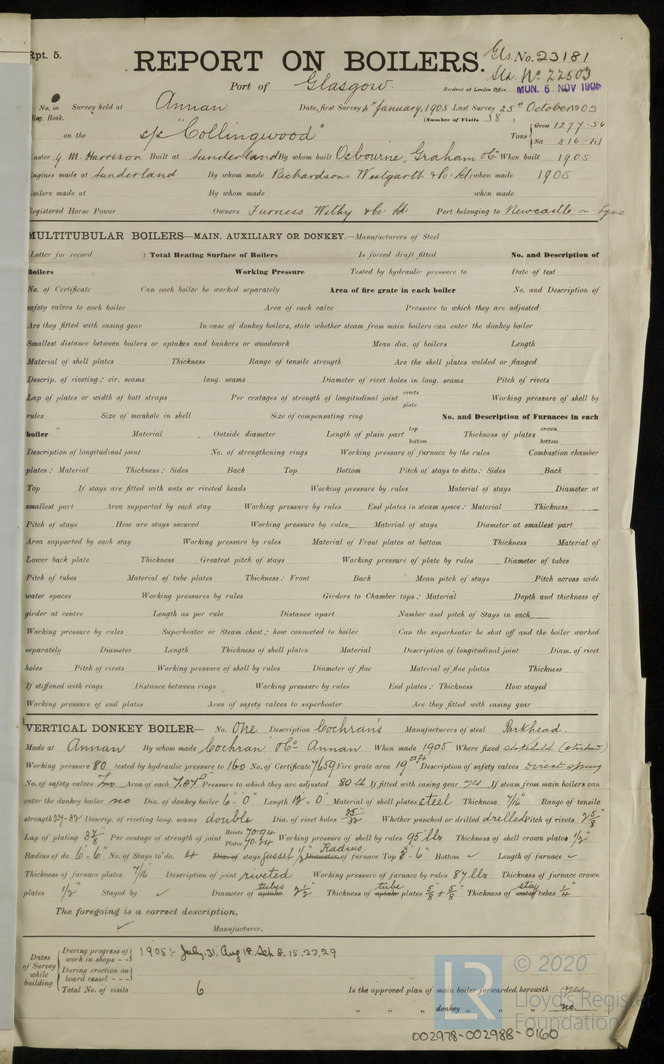 Rpt. 5.
REPORT ON BOILERS.
Gls. No. 23181
Sld. No 22503
Port of Glasgow.
Received at London Office
MUN. 6 NOV 1905
No. in Reg. Book.
Survey held at Annan
Date, first Survey 4th January, 1905 Last Survey 25th October 1905
(Number of Visits 38)
on the s/s "Collingwood"
Tons { Gross 1277.56 Net 816.41
Master G. M. Harrison Built at Sunderland By whom built Osbourne, Graham & Co When built 1905
Engines made at Sunderland By whom made Richardsons Westgarth & Co. Ld when made 1905
Boilers made at By whom made when made
Registered Horse Power Owners Furness Withy & Co. Ld Port belonging to Newcastle on Tyne
MULTITUBULAR BOILERS—MAIN, AUXILIARY OR DONKEY.—Manufacturers of Steel
(Letter for record ) Total Heating Surface of Boilers Is forced draft fitted No. and Description of
Boilers Working Pressure Tested by hydraulic pressure to Date of test
No. of Certificate Can each boiler be worked separately Area of fire grate in each boiler No. and Description of
safety valves to each boiler Area of each valve Pressure to which they are adjusted
Are they fitted with easing gear In case of donkey boilers, state whether steam from main boilers can enter the donkey boiler
Smallest distance between boilers or uptakes and bunkers or woodwork Mean dia. of boilers Length
Material of shell plates Thickness Range of tensile strength Are the shell plates welded or flanged
Descrip. of riveting: cir. seams long. seams Diameter of rivet holes in long. seams Pitch of rivets
Lap of plates or width of butt straps Per centages of strength of longitudinal joint rivets plate Working pressure of shell by
rules Size of manhole in shell Size of compensating ring No. and Description of Furnaces in each
boiler Material Outside diameter Length of plain part top bottom Thickness of plates crown bottom
Description of longitudinal joint No. of strengthening rings Working pressure of furnace by the rules Combustion chamber
plates: Material Thickness: Sides Back Top Bottom Pitch of stays to ditto: Sides Back
Top If stays are fitted with nuts or riveted heads Working pressure by rules Material of stays Diameter at
smallest part Area supported by each stay Working pressure by rules End plates in steam space: Material Thickness
Pitch of stays How are stays secured Working pressure by rules Material of stays Diameter at smallest part
Area supported by each stay Working pressure by rules Material of Front plates at bottom Thickness Material of
Lower back plate Thickness Greatest pitch of stays Working pressure of plate by rules Diameter of tubes
Pitch of tubes Material of tube plates Thickness: Front Back Mean pitch of stays Pitch across wide
water spaces Working pressures by rules Girders to Chamber tops: Material Depth and thickness of
girder at centre Length as per rule Distance apart Number and pitch of Stays in each
Working pressure by rules Superheater or Steam chest; how connected to boiler Can the superheater be shut off and the boiler worked
separately Diameter Length Thickness of shell plates Material Description of longitudinal joint Diam. of rivet
holes Pitch of rivets Working pressure of shell by rules Diameter of flue Material of flue plates Thickness
If stiffened with rings Distance between rings Working pressure by rules End plates: Thickness How stayed
Working pressure of end plates Area of safety valves to superheater Are they fitted with easing gear
VERTICAL DONKEY BOILER— No. One Description Cochran's Manufacturers of steel Parkhead.
Made at Annan By whom made Cochran & Co Annan When made 1905 Where fixed stokehold
Working pressure 80 tested by hydraulic pressure to 160 No. of Certificate 7659 Fire grate area 19 Description of safety valves direct spring
No. of safety valves Two Area of each 7.07 Pressure to which they are adjusted 80 lb If fitted with easing gear yes If steam from main boilers can
enter the donkey boiler no Dia. of donkey boiler 6'-0" Length 12'-0" Material of shell plates steel Thickness 7/16" Range of tensile
strength 27-32 Descrip. of riveting long. seams double Dia. of rivet holes 25/32 Whether punched or drilled drilled Pitch of rivets 2 5/8
Lap of plating 3 7/8 Per centage of strength of joint Rivets 70.94 Plates 70.24 Working pressure of shell by rules 95 lbs Thickness of shell crown plates 1/2"
Radius of do. 6'-6" No. of Stays to do. 4 Dia. of stays Gusset 1/2" Radius Diameter of furnace Top 3'-6" Bottom ✓ Length of furnace ✓
Thickness of furnace plates 7/16 Description of joint riveted Working pressure of furnace by rules 87 lbs Thickness of furnace crown
plates 1/2" Stayed by ✓ Diameter of tubes uptake 2 1/2" Thickness of tube uptake plates 5/8 & 5/8 Thickness of stay water tubes 1/4"
The foregoing is a correct description,
Manufacturer.
Dates of Survey while building
During progress of work in shops - - 1905:- July, 31. Aug 18. Sep 8, 15, 27, 29
During erection on board vessel - - -
Total No. of visits 6
Is the approved plan of main boiler forwarded herewith yes
" " " donkey " " " no.
002978-002988-0160
LR
© 2020
Lloyd's Register
Foundation